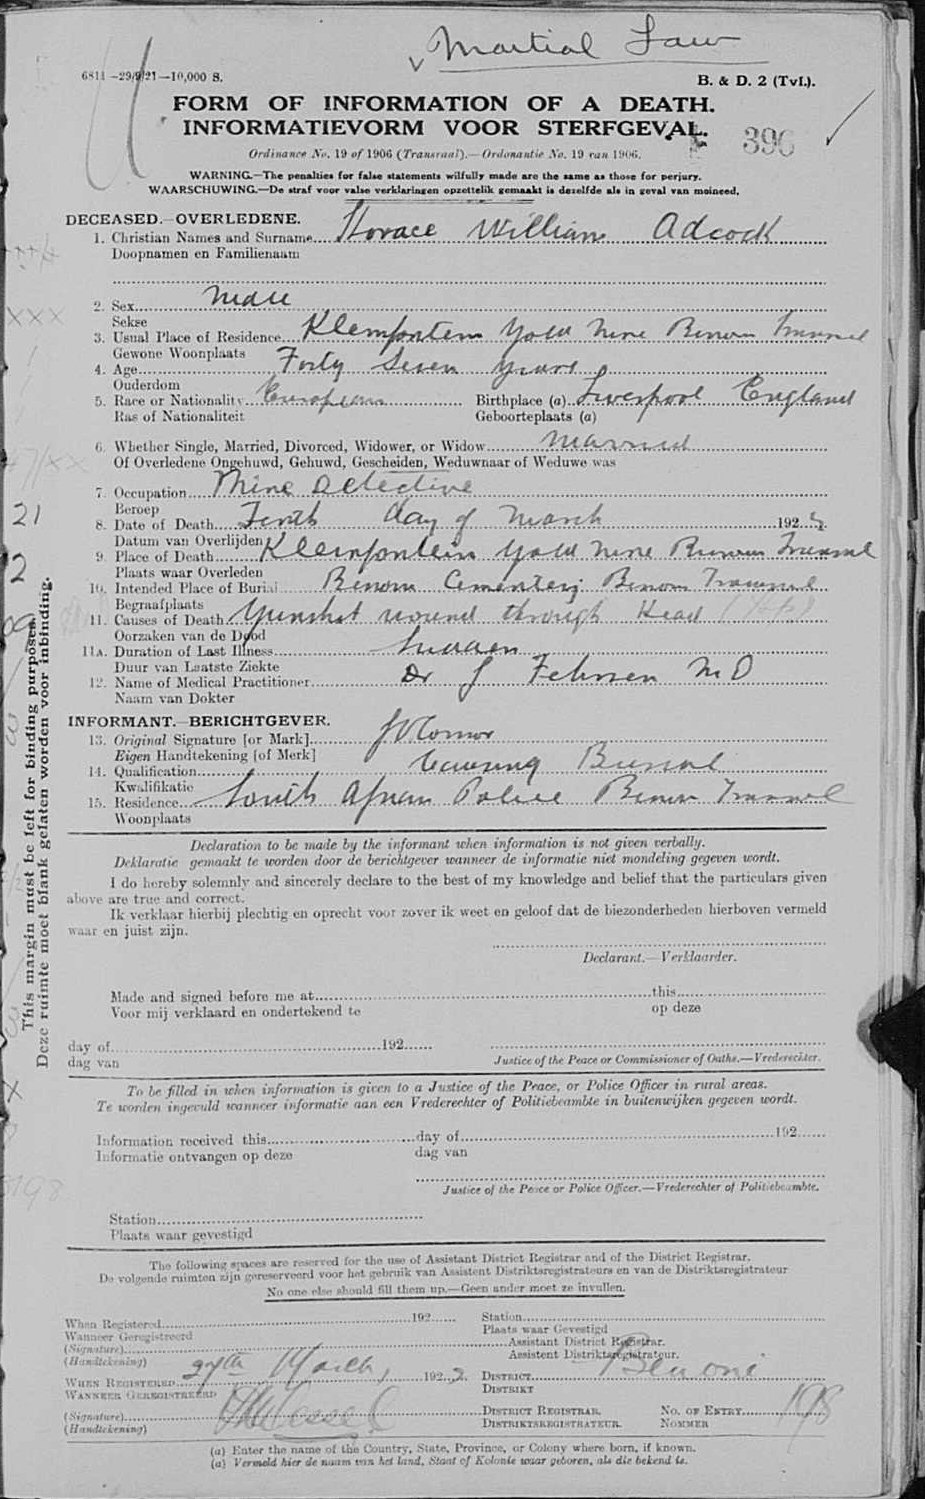 Martial Law
6811 —29/9/21—10,000 S.
B. & D. 2 (Tvl.).
FORM OF INFORMATION OF A DEATH.
INFORMATIEVORM VOOR STERFGEVAL.
396
Ordinance No. 19 of 1906 (Transvaal).—Ordonantie No. 19 van 1906.
WARNING.—The penalties for false statements wilfully made are the same as those for perjury.
WAARSCHUWING.—De straf voor valse verklaringen opzettelik gemaakt is dezelfde als in geval van moineed.
DECEASED.—OVERLEDENE.
1. Christian Names and Surname Horace William Adcock
Doopnamen en Familienaam
2. Sex Male
Sekse
3. Usual Place of Residence Kleinfontein Gold Mine Benoni Transvaal
Gewone Woonplaats
4. Age Forty Seven years
Ouderdom
5. Race or Nationality European Birthplace (a) Liverpool England
Ras of Nationaliteit Geboorteplaats (a)
6. Whether Single, Married, Divorced, Widower, or Widow Married
Of Overledene Ongehuwd, Gehuwd, Gescheiden, Weduwnaar of Weduwe was
7. Occupation Mine Detective
Beroep
8. Date of Death Tenth day of March 192 2
Datum van Overlijden
9. Place of Death Kleinfontein Gold Mine Benoni Transvaal
Plaats waar Overleden
10. Intended Place of Burial Benoni Cementery Benoni Transvaal
Begraafplaats
11. Causes of Death Gunshot wound through Head
Oorzaken van de Dood
11A. Duration of Last Illness Sudden
Duur van Laatste Ziekte
12. Name of Medical Practitioner Dr J Fehrsen M D
Naam van Dokter
INFORMANT.—BERICHTGEVER.
13. Original Signature [or Mark]
Eigen Handtekening [of Merk]
14. Qualification Causing Burial
Kwalifikatie
15. Residence South African Police Benoni Transvaal
Woonplaats
Declaration to be made by the informant when information is not given verbally.
Deklaratie gemaakt te worden door de berichtgever wanneer de informatie niet mondeling gegeven wordt.
I do hereby solemnly and sincerely declare to the best of my knowledge and belief that the particulars given
above are true and correct.
Ik verklaar hierbij plechtig en oprecht voor zover ik weet en geloof dat de biezonderheden hierboven vermeld
waar en juist zijn.
Declarant.—Verklaarder.
Made and signed before me at this
Voor mij verklaard en ondertekend te op deze
day of 192
dag van
Justice of the Peace or Commissioner of Oaths.—Vrederechter.
To be filled in when information is given to a Justice of the Peace, or Police Officer in rural areas.
Te worden ingevuld wanneer informatie aan een Vrederechter of Politiebeambte in buitenwijken gegeven wordt.
Information received this day of 192
Informatie ontvangen op deze dag van
Justice of the Peace or Police Officer.—Vrederechter of Politiebeambte.
Station
Plaats waar gevestigd
The following spaces are reserved for the use of Assistant District Registrar and of the District Registrar.
De volgende ruimten zijn gereserveerd voor het gebruik van Assistent Distriktsregistrateurs en van de Distriktsregistrateur
No one else should fill them up.—Geen ander moet ze invullen.
When Registered 192 Station
Wanneer Geregistreerd Plaats waar Gevestigd
(Signature) Assistant District Registrar.
(Handtekening) Assistent Distriktsregistrateur.
WHEN REGISTERED 27th March, 192 2. DISTRICT Benoni
WANNEER GEREGISTREERD DISTRIKT
(Signature) DISTRICT REGISTRAR. NO. OF ENTRY 198
(Handtekening) DISTRIKTSREGISTRATEUR. NOMMER
(a) Enter the name of the Country, State, Province, or Colony where born, if known.
(a) Vermeld hier de naam van het land, Staat of Kolonie waar geboren, als die bekend is.
This margin must be left for binding purposes.
Deze ruimte moet blank gelaten worden voor inbinding.
21
2